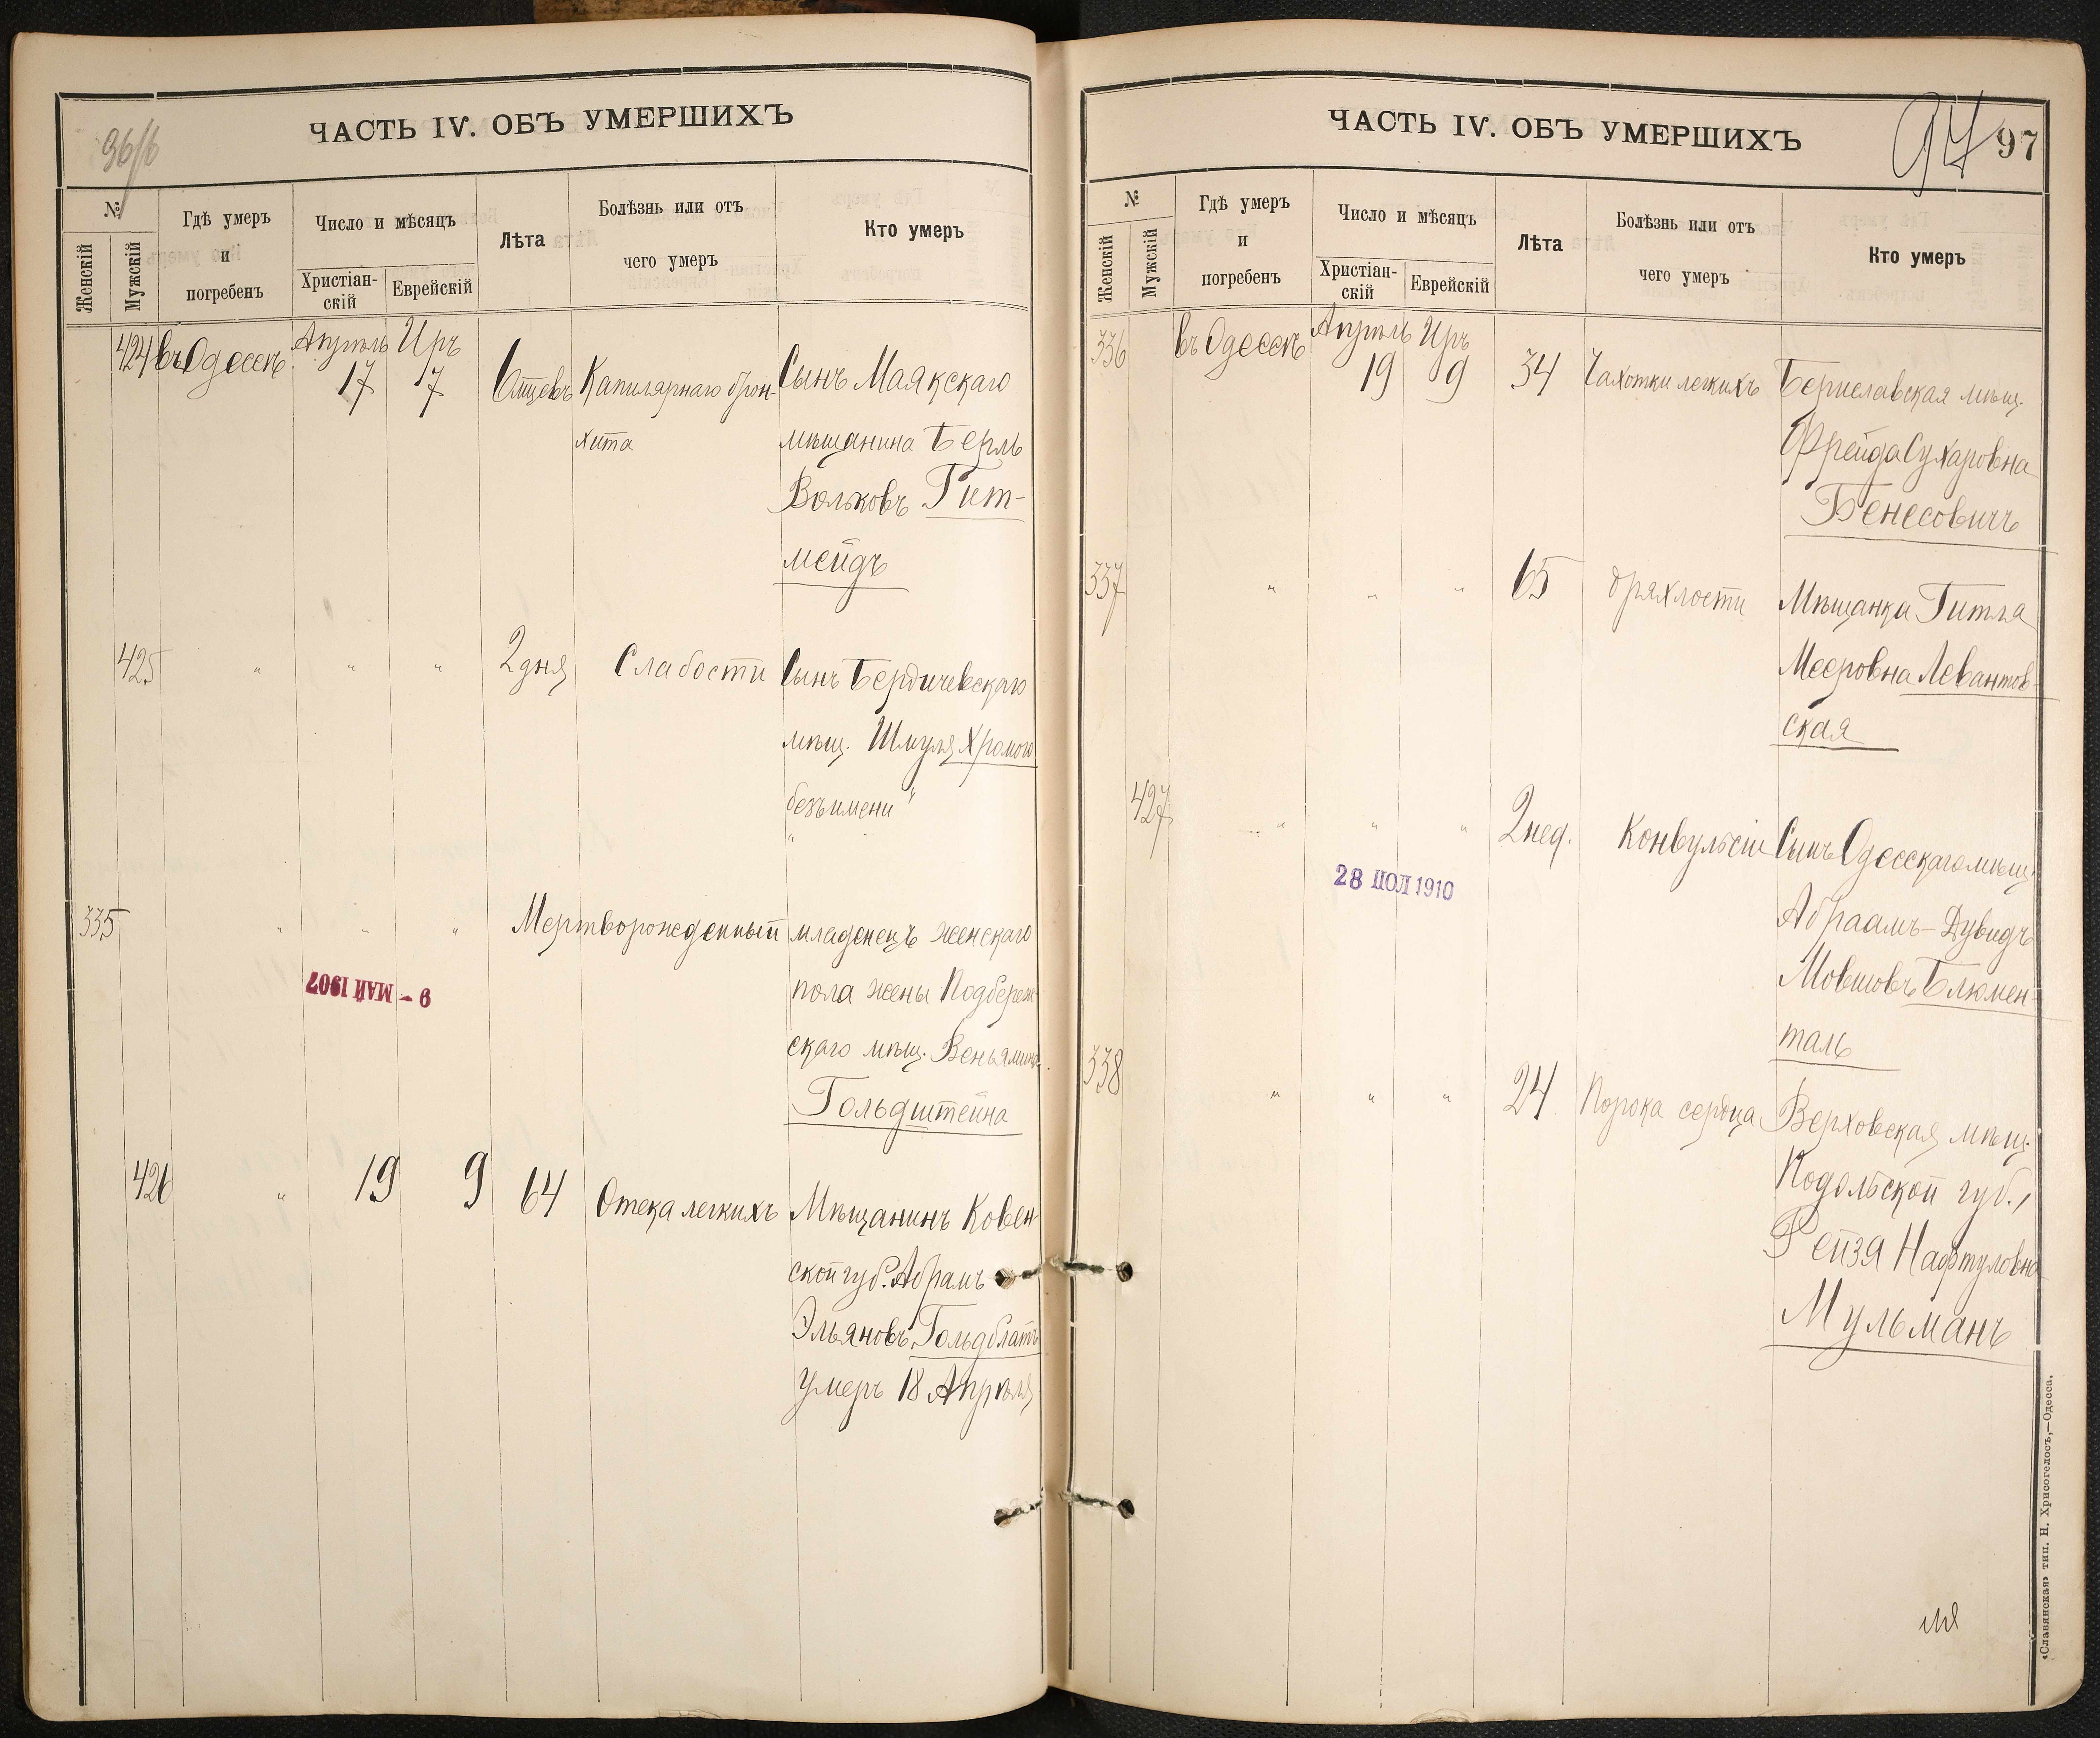 ЧАСТЬ IV. ОБЪ УМЕРШИХЪ
96/б
№
Женскій
Мужскій
Гдѣ умеръ
и
погребенъ
Число и мѣсяцъ
Христіан-
скій
Еврейскій
Лѣта
Болѣзнь или отъ
чего умеръ
Кто умеръ
424 въ Одессѣ Апрѣль 17 Иръ 7 6 мцевъ Капилярнаго брон-
хита
Сынъ Маякскаго
мѣщанина Берль
Вольковъ Гит-
мейдъ
425 " " " 2 дня Слабости Сынъ Бердичевскаго
мѣщ. Шмуля Хромого
"безъимени"
335 " " " Мертворожденный младенецъ женскаго
пола жены Подбереж-
скаго мѣщ. Веньямина
Гольдштейна
9 - МАЙ 1907
426 " 19 9 64 Отека легкихъ Мѣщанинъ Ковен-
ской губ. Абрамъ
Эльяновъ Гольдблатъ
умеръ 18 Апрѣля
ЧАСТЬ IV. ОБЪ УМЕРШИХЪ
97 97
№
Женскій
Мужскій
Гдѣ умеръ
и
погребенъ
Число и мѣсяцъ
Христіан-
скій
Еврейскій
Лѣта
Болѣзнь или отъ
чего умеръ
Кто умеръ
336 въ Одессѣ Апрѣль 19 Иръ 9 34 Чахотки легкихъ Бериславская мѣщ.
Фрейда Сухаровна
Бенесовичъ
337 " " " 65 дряхлости Мѣщанка Гитля
Мееровна Левантов-
ская
427 " " " 2 нед. Конвульсіи Сынъ Одесскаго мѣщ.
Абраамъ-Дувидъ
Мовшовъ Блюмен-
таль
28 ІЮЛ 1910
338 " " " 24 Порока сердца Верховская мѣщ.
Подольской губ.,
Рейзя Нафтуловна
Мульманъ
«Славянская» тип. Н. Хрисогелосъ,—Одесса.